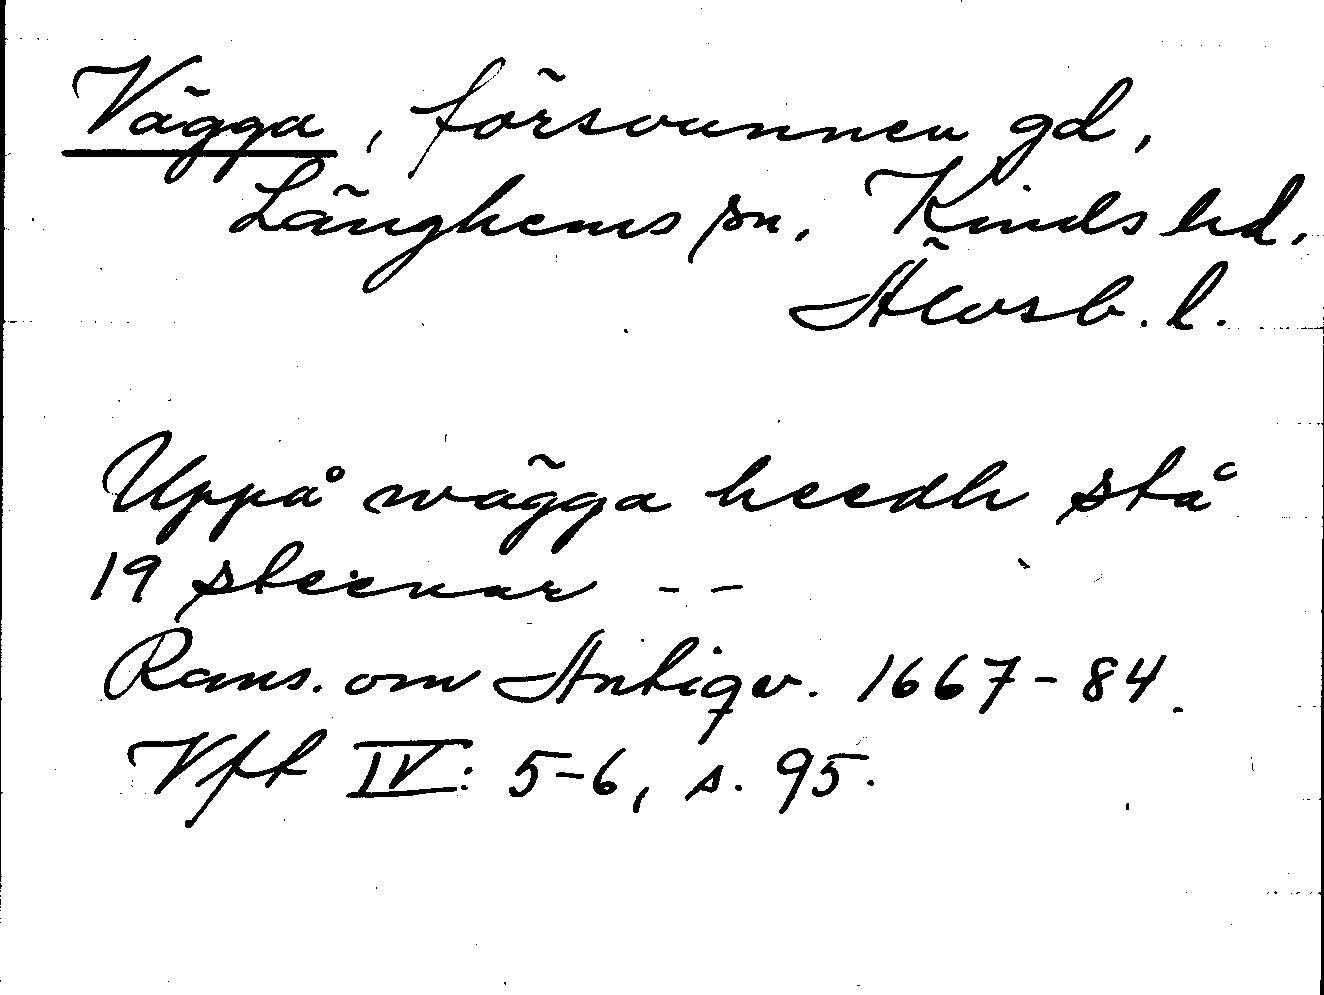 Vägga, försvunnen gd,
Länghems sn. Kinds hd.
Älvsb. l.
Uppå wägga heedh stå
19 steenar - -
Rans. om Antiqv. 1667-84.
Vft IV: 5-6, s. 95.